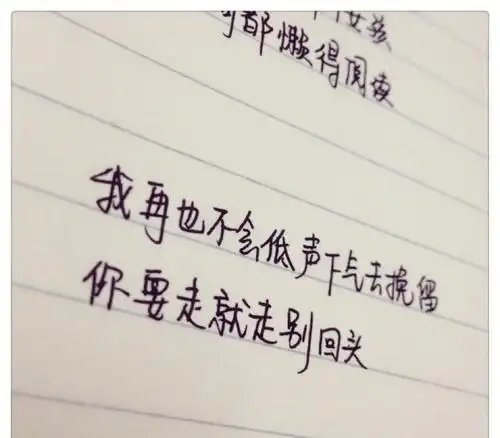 女孩
都懒得阅读
我再也不会低声下气去挽留
你要走就走别回头